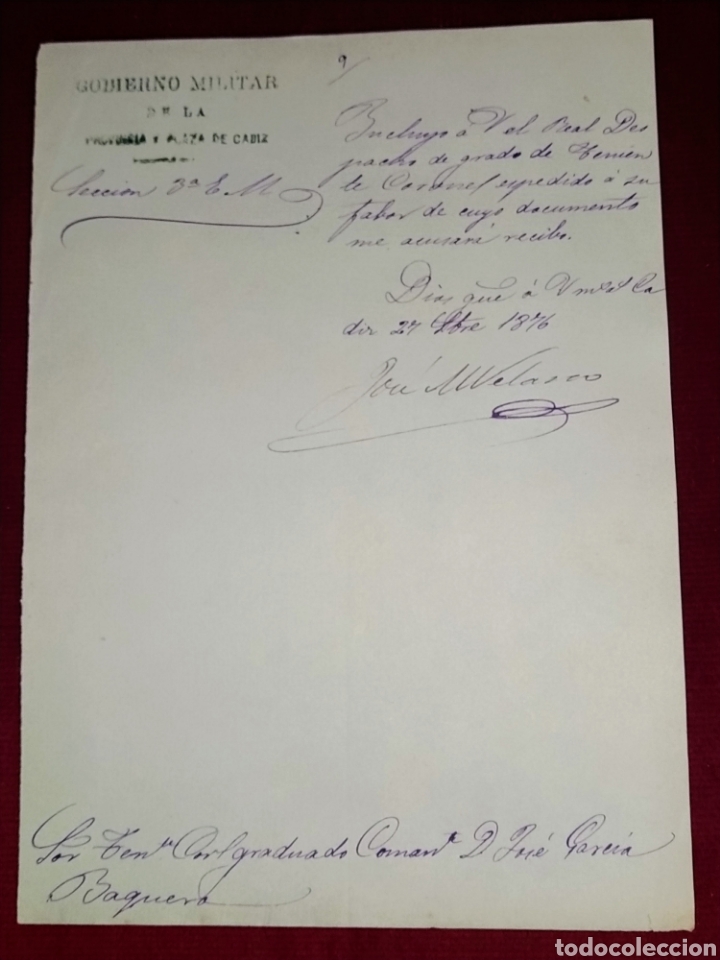 9/
GOBIERNO MILITAR
DE LA
PROVINCIA Y PLAZA DE CADIZ
Seccion 3ª E M
Incluyo á V el Real Des
pacho de grado de Tenien
te Coronel expedido á su
fabor de cuyo documento
me acusará recibo.
Dios gue á V ms as Ca
diz 27 bre 1876
José M Velasco
Sor Tente Corl graduado Comante D José García
Baquero
todocoleccion
todocoleccion.net